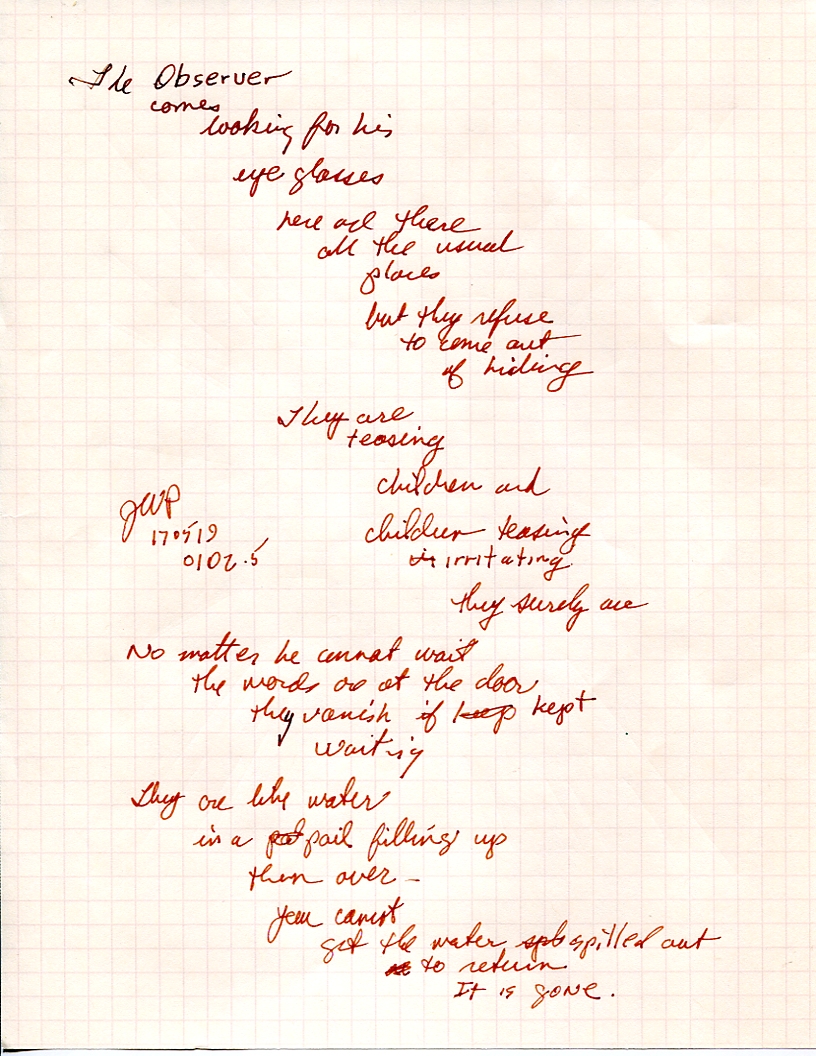 The Observer
comes
looking for his
eye glasses
here and there
all the usual
places
but they refuse
to come out
of hiding
They are
teasing
children and
children teasing
is irritating
they surely are
JWP
170519
0102.5
No matter he cannot wait
the words are at the door
they vanish if keep kept
waiting
They are like water
in a pail filling up
then over –
you cannot
get the water spilled out
to return
It is gone.